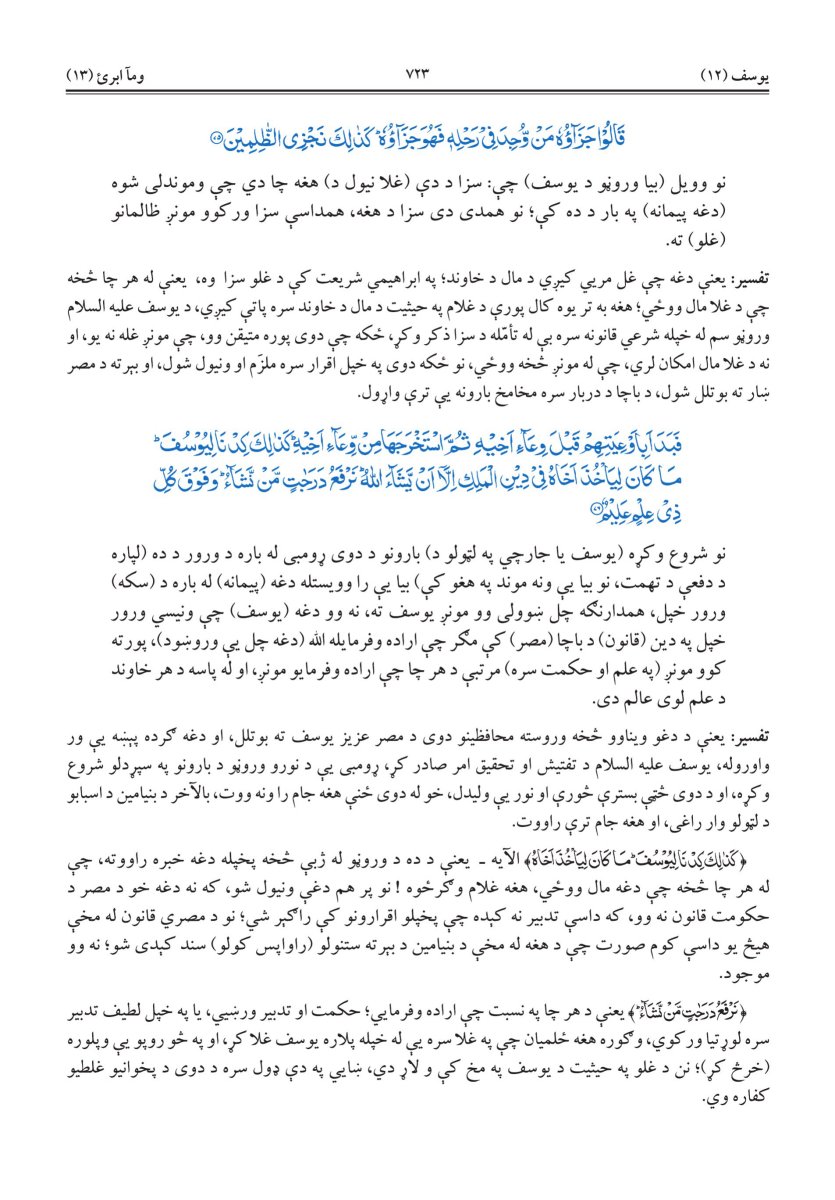 یوسف (۱۲)
۷۲۳
ومآ ابرئ (۱۳)
قَالُوۡا جَزَآؤُهٗ مَنۡ وُّجِدَ فِىۡ رَحۡلِهٖ فَهُوَ جَزَآؤُهٗ ؕ كَذٰلِكَ نَجۡزِى الظّٰلِمِيۡنَ ﴿۷۵﴾
نو وویل (بیا وروڼو د یوسف) چې: سزا د دې (غلا نیول د) هغه چا دي چې وموندلی شوه
(دغه پیمانه) په بار د ده کې؛ نو همدی دی سزا د هغه، همداسې سزا ورکوو مونږ ظالمانو
(غلو) ته.
تفسیر: یعنې دغه چې غل مریی کیږي د مال د خاوند؛ په ابراهیمي شریعت کې د غلو سزا وه، یعنې له هر چا څخه
چې د غلا مال ووځي؛ هغه به تر یوه کال پورې د غلام په حیثیت د مال د خاوند سره پاتې کیږي، د یوسف علیه السلام
وروڼو سم له خپله شرعي قانونه سره بې له تأمّله د سزا ذکر وکړ، ځکه چې دوی پوره متیقن وو، چې مونږ غله نه یو، او
نه د غلا مال امکان لري، چې له مونږ څخه ووځي، نو ځکه دوی په خپل اقرار سره ملزَم او ونیول شول، او بېرته د مصر
ښار ته بوتلل شول، د باچا د دربار سره مخامخ بارونه یې ترې واړول.
فَبَدَاَ بِاَوۡعِيَتِهِمۡ قَبۡلَ وِعَآءِ اَخِيۡهِ ثُمَّ اسۡتَخۡرَجَهَا مِنۡ وِّعَآءِ اَخِيۡهِ ؕ كَذٰلِكَ كِدۡنَا لِيُوۡسُفَ ؕ
مَا كَانَ لِيَاۡخُذَ اَخَاهُ فِىۡ دِيۡنِ الۡمَلِكِ اِلَّاۤ اَنۡ يَّشَآءَ اللّٰهُ ؕ نَرۡفَعُ دَرَجٰتٍ مَّنۡ نَّشَآءُ ؕ وَفَوۡقَ كُلِّ
ذِىۡ عِلۡمٍ عَلِيۡمٌ ﴿۷۶﴾
نو شروع وکړه (یوسف یا جارچي په لټولو د) بارونو د دوی ړومبی له باره د ورور د ده (لپاره
د دفعې د تهمت، نو بیا یې ونه موند په هغو کې) بیا یې را وویستله دغه (پیمانه) له باره د (سکه)
ورور خپل، همدارنګه چل ښوولی وو مونږ یوسف ته، نه وو دغه (یوسف) چې ونیسي ورور
خپل په دین (قانون) د باچا (مصر) کې مګر چې اراده وفرمایله الله (دغه چل یې وروښود)، پورته
کوو مونږ (په علم او حکمت سره) مرتبې د هر چا چې اراده وفرمایو مونږ، او له پاسه د هر خاوند
د علم لوی عالم دی.
تفسیر: یعنې د دغو ویناوو څخه وروسته محافظینو دوی د مصر عزیز یوسف ته بوتلل، او دغه ګرده پېښه یې ور
واوروله، یوسف علیه السلام د تفتیش او تحقیق امر صادر کړ، ړومبی یې د نورو وروڼو د بارونو په سپړدلو شروع
وکړه، او د دوی څټې بسترې څورې او نور یې ولیدل، خو له دوی ځنې هغه جام را ونه ووت، بالآخر د بنیامین د اسبابو
د لټولو وار راغی، او هغه جام ترې راووت.
﴿كَذٰلِكَ كِدۡنَا لِيُوۡسُفَ ؕ مَا كَانَ لِيَاۡخُذَ اَخَاهُ﴾ الآیه ـ یعنې د ده د وروڼو له ژبې څخه پخپله دغه خبره راووته، چې
له هر چا څخه چې دغه مال ووځي، هغه غلام وګرځوه ! نو پر هم دغې ونیول شو، که نه دغه خو د مصر د
حکومت قانون نه وو، که داسې تدبیر نه کېده چې پخپلو اقرارونو کې راګېر شي؛ نو د مصري قانون له مخې
هیڅ یو داسې کوم صورت چې د هغه له مخې د بنیامین د بېرته ستنولو (راواپس کولو) سند کېدی شو؛ نه وو
موجود.
﴿نَرۡفَعُ دَرَجٰتٍ مَّنۡ نَّشَآءُ ؕ﴾ یعنې د هر چا په نسبت چې اراده وفرمایي؛ حکمت او تدبیر ورښیي، یا په خپل لطیف تدبیر
سره لوړتیا ورکوي، وګوره هغه ځلمیان چې په غلا سره یې له خپله پلاره یوسف غلا کړ، او په څو روپو یې وپلوره
(خرڅ کړ)؛ نن د غلو په حیثیت د یوسف په مخ کې و لاړ دي، ښایي په دې ډول سره د دوی د پخوانیو غلطیو
کفاره وي.